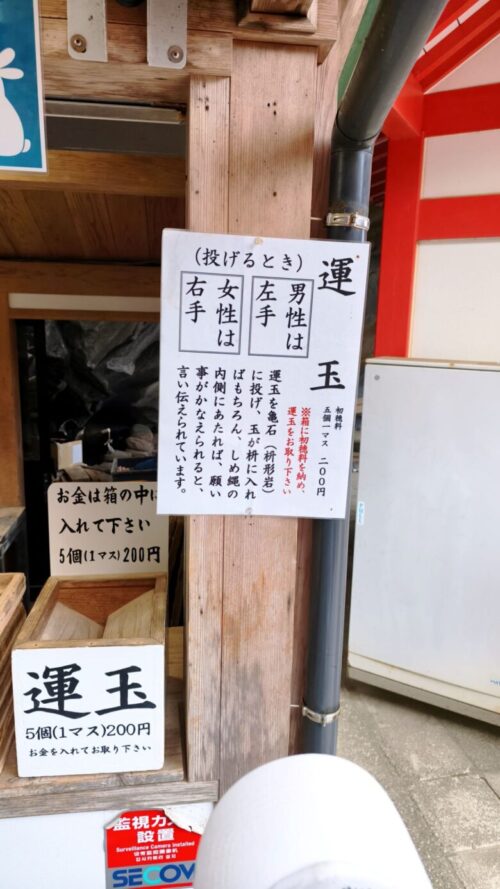 運玉
初穂料
五個一マス 二〇〇円
※箱に初穂料を納め、
運玉をお取り下さい
(投げるとき)
男性は
左手
女性は
右手
運玉を亀石(枡形岩)
に投げ、玉が枡に入れ
ばもちろん、しめ縄の
内側にあたれば、願い
事がかなえられると、
言い伝えられています。
お金は箱の中に
入れて下さい
5個(1マス)200円
運玉
5個(1マス)200円
お金を入れてお取り下さい
監視カメ
設置
Surveillance Camera Installed
SECOM